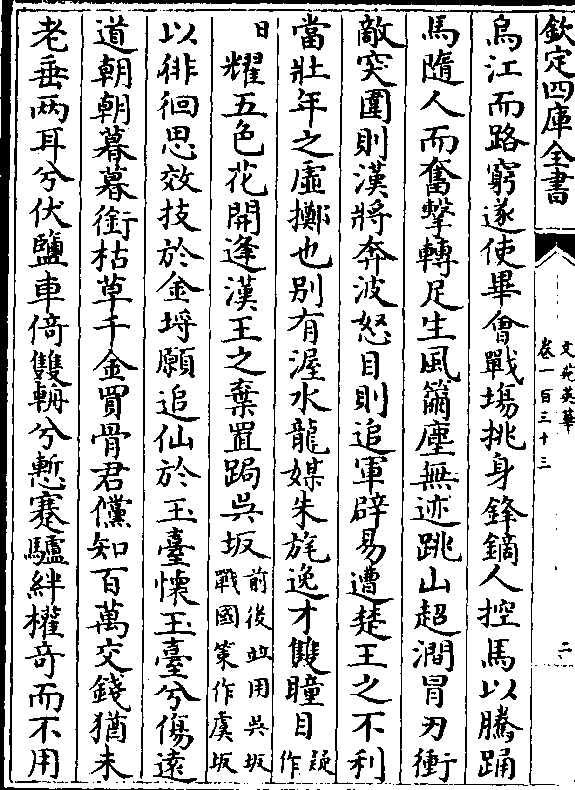 欽定四庫全書
文苑英華
卷一百三十三
二
烏江而路窮遂使畢會戰場挑身鋒鏑人控馬以騰踊
馬隨人而奮擊轉足生風籋塵無迹跳山超澗冒刃衝
敵突圍則漢將奔波怒目則追軍辟易遭楚王之不利
當壯年之虛擲也别有渥水龍媒朱旄逸才雙瞳目疑作
日耀五色花開逢漢王之棄置跼吳坂前後並用吳坂戰國策作虞坂
以徘徊思效技於金埒願追仙於玉臺懷玉臺兮傷遠
道朝朝暮暮銜枯草千金買骨君儻知百萬交錢猶未
老垂兩耳兮伏鹽車倚雙輈兮慙蹇驢絆權竒而不用